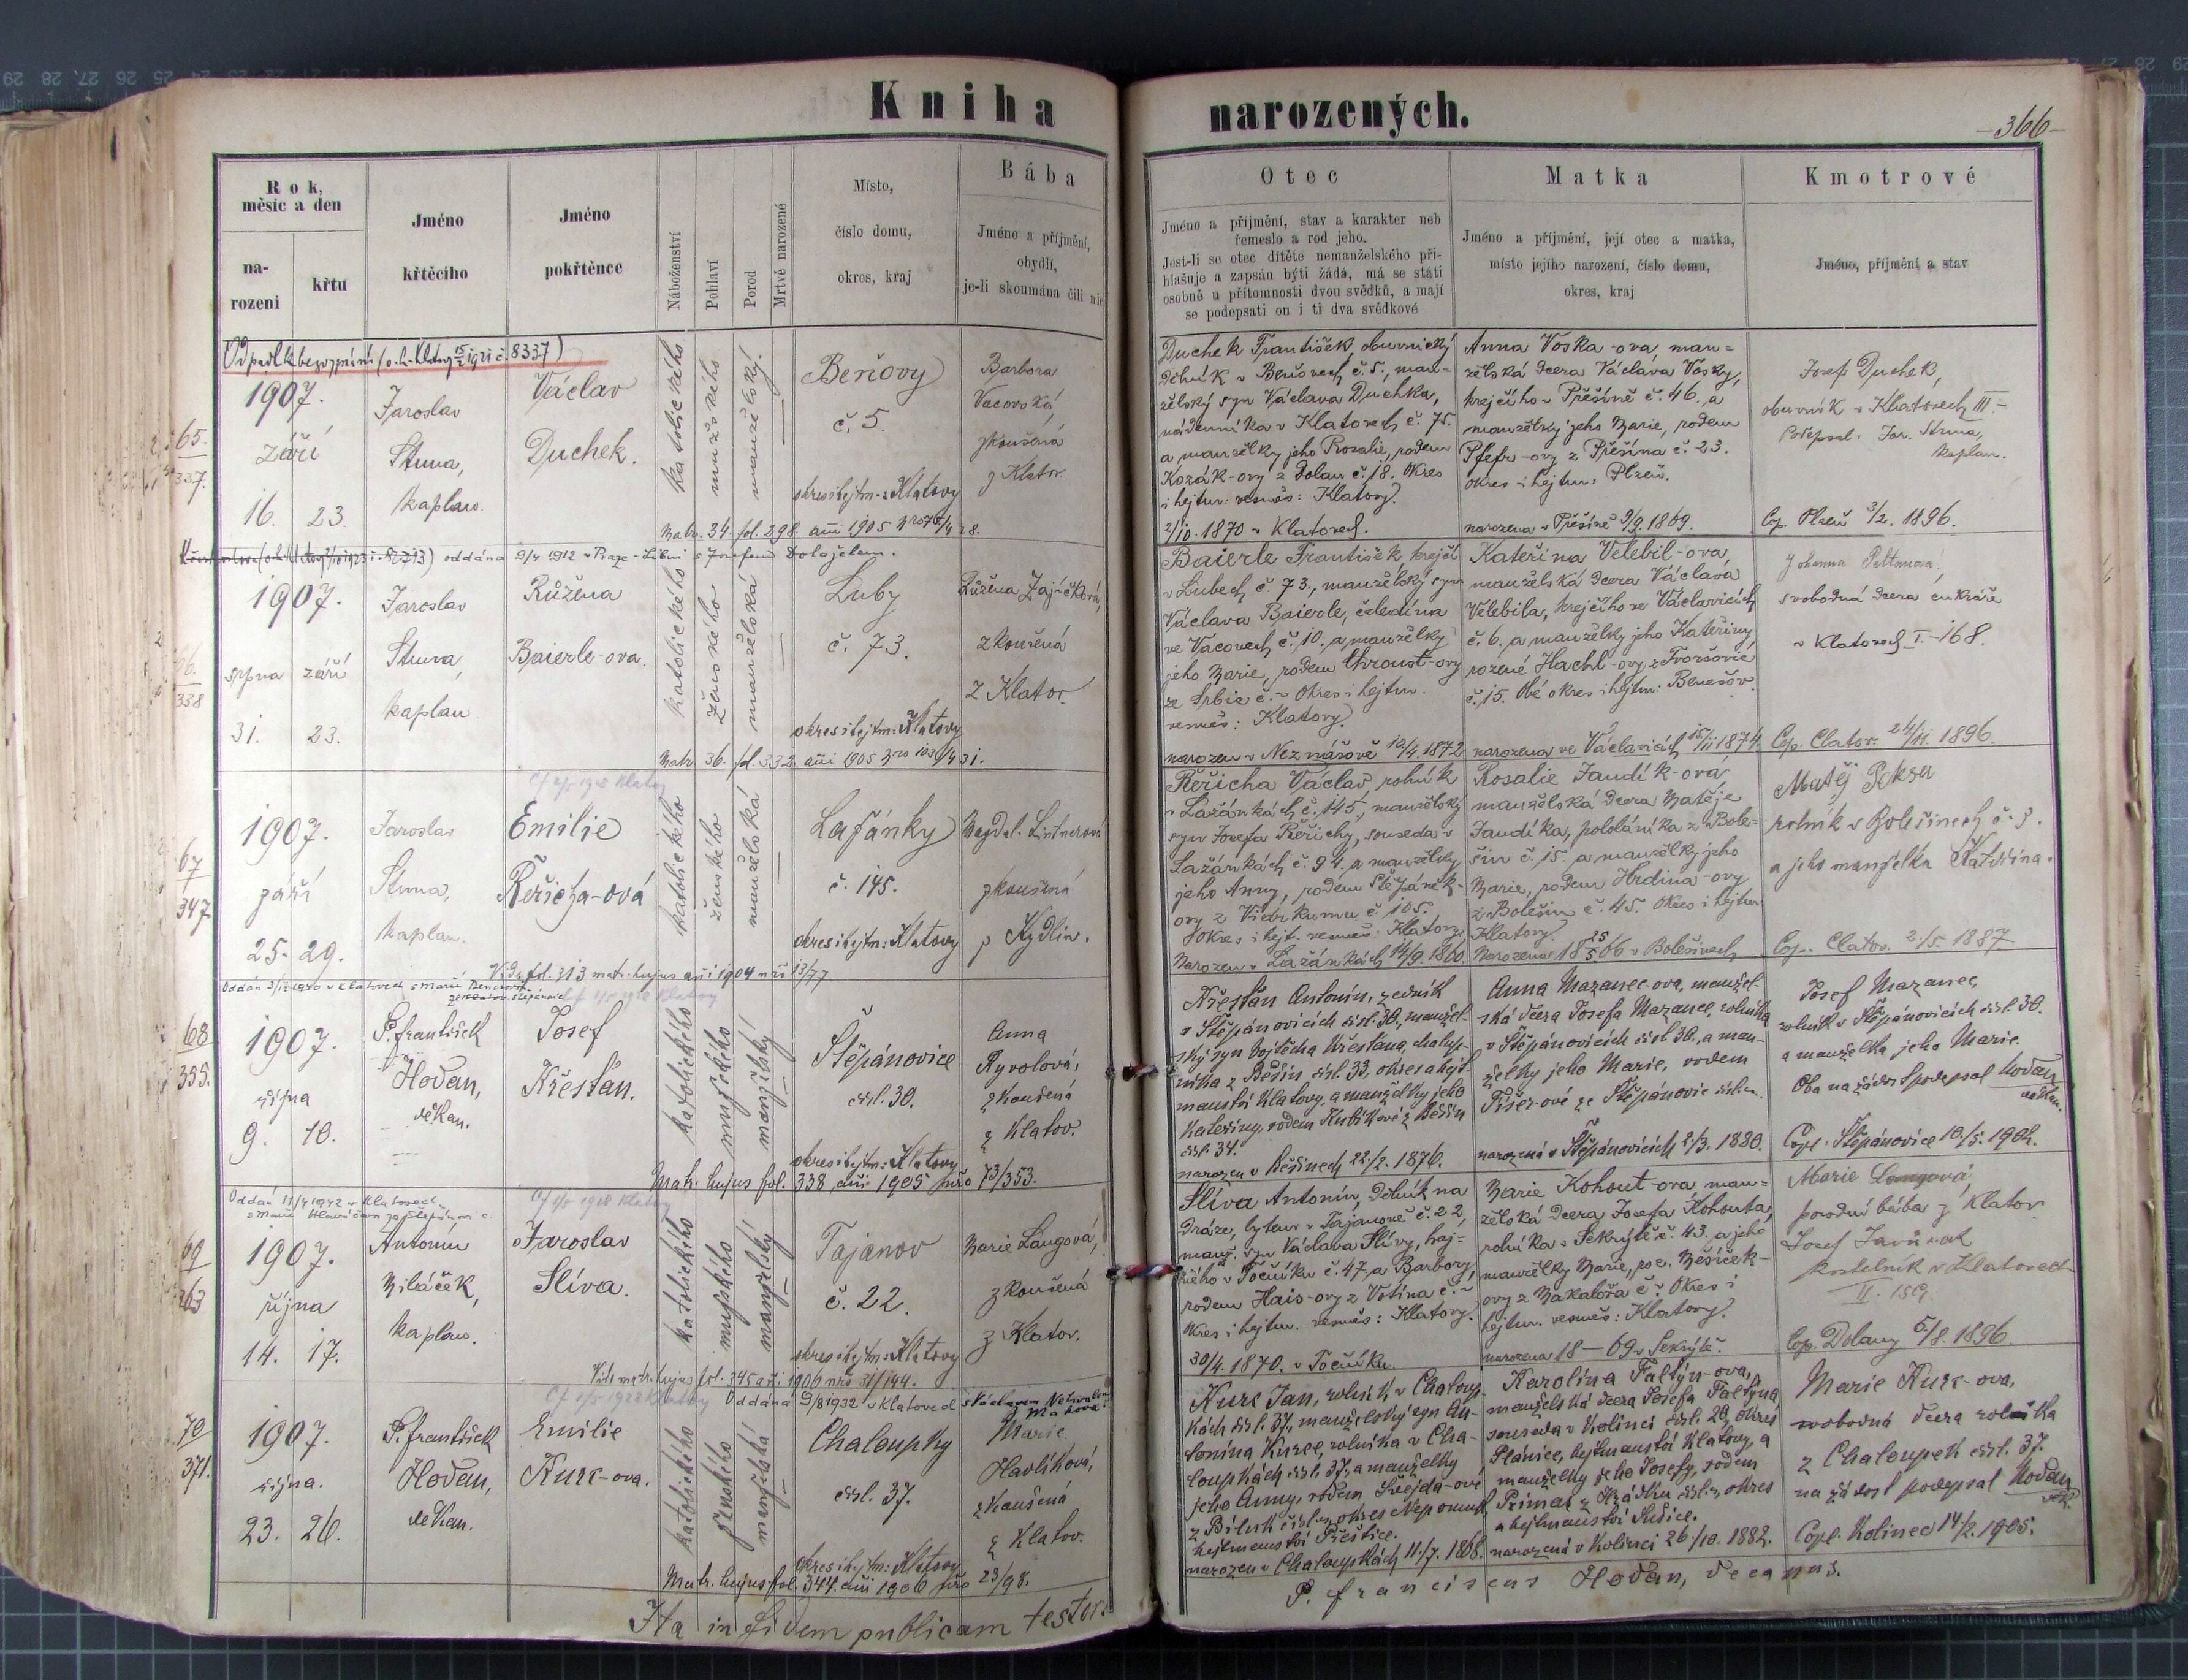 Kniha narozených.
-366-
Rok, měsíc a den
narození
křtu
Jméno křtěcího
Jméno pokřtěnce
Náboženství
Pohlaví
Porod
Mrtvě narozené
Místo,
číslo domu,
okres, kraj
Bába
Jméno a příjmění,
obydlí,
je-li skoumána čili nic
Otec
Jméno a příjmění, stav a karakter neb
řemeslo a rod jeho.
Jest-li se otec dítěte nemanželského při-
hlašuje a zapsán býti žádá, má se státi
osobně u přítomnosti dvou svědků, a mají
se podepsati on i ti dva svědkové
Matka
Jméno a příjmění, její otec a matka,
místo jejího narození, číslo domu,
okres, kraj
Kmotrové
Jméno, příjmění a stav
65.
337.
1907.
září
16. 23.
Jaroslav
kaplan.
Václav
Duchek.
katolického
mužského
manželský.
Beňovy
č. 5.
okres i hejtm.: Klatovy
Barbora
Vacovská,
zkoušená
z Klatov.
Matr. 34. fol. 298. anni 1905
Duchek František, obuvnický
dělník v Beňovech č. 5., man-
želský syn Václava Duchka,
nádenníka v Klatovech č. 75.
a manželky jeho Rosalie, rodem
Kozák-ovy z Dolan č. 18. Okres
i hejtm. vesměs: Klatovy.
2/10. 1870 v Klatovech.
Anna Voska-ova, man=
želská dcera Václava Vosky,
krejčího v Přešíně č. 46. a
manželky jeho Marie, rodem
Pfefr-ovy z Přešína č. 23.
Okres i hejtm: Plzeň.
narozena v Přešíně 9/9. 1869.
Josef Duchek,
obuvník v Klatovech III.
Podepsal: Jar.
kaplan.
Cop. Plzeň 3/2. 1896.
oddána 9/ 1912 v Praze-Libni s Josefem Dolejšem.
66.
338
1907.
srpna září
31. 23.
Jaroslav
kaplan
Růžena
Baierle-ova.
katolického
ženského
manželská
Luby
č. 73.
okres i hejtm: Klatovy
Růžena Zajíčková,
zkoušená
z Klatov
Matr. 36. fol. 332 anni 1905
Baierle František, krejčí
v Lubech č. 73., manželský syn
Václava Baierle, čeledína
ve Vacovech č. 10. a manželky
jeho Marie, rodem Chroust-ovy
ze Srbic č. Okres i hejtm.
vesměs: Klatovy.
narozen v Neznášově 10/4. 1872
Kateřina Velebil-ova,
manželská dcera Václava
Velebila, krejčího ve Václavicích
č. 6. a manželky jeho Kateřiny,
rozené Hachl-ovy z Tvoršovic
č. 15. Obé okres i hejtm: Benešov.
narozena ve Václavicích 15/11 1874.
Johanna Peltanová,
svobodná dcera cukráře
v Klatovech I.-168.
Cop. Clatov. 24/11. 1896.
67
347
1907.
září
25. 29.
Jaroslav
kaplan.
Emilie
Řeřicha-ová
katolického
ženského
manželská
Lažánky
č. 145.
okres i hejtm: Klatovy
Magdal. Lintnerová
zkoušená
z Kydlin.
Vide fol. 313 matr. hujus anni 1904 nri 13/77
Řeřicha Václav, rolník
v Lažánkách č. 145., manželský
syn Josefa Řeřichy, souseda v
Lažánkách č. 94. a manželky
jeho Anny, rodem Štěpánek-
ovy z Vícrkumu č. 105.
Okres i hejt. vesměs: Klatovy
Narozen v Lažánkách 14/9. 1860.
Rosalie Jandík-ová,
manželská dcera Matěje
Jandíka, pololáníka z Bole-
šin č. 15. a manželky jeho
Marie, rodem Hrdina-ovy
z Bolešin č. 45. Okres i hejtm:
Klatovy.
Narozena 18 25/5 66 v Bolešinech
Matěj
rolník v Bolešinech č. 3.
a jeho manželka Kateřina.
Cop. Clatov. 2./5. 1887
68
355.
1907.
října
9. 10.
P. František
Hodan,
děkan.
Josef
Křešťan.
katolického
mužského
manželský
Štěpánovice
čísl. 30.
okres i hejtm: Klatovy
Anna
Ryvolová,
zkoušená
z Klatov.
Matr. hujus fol. 338 anni 1905 nro 73/353.
Křešťan Antonín, zedník
v Štěpánovicích čísl. 30., manžel-
ský syn Vojtěcha Křešťana, chalup-
níka z Běšin čísl. 33, okres a hejt-
manství Klatovy, a manželky jeho
Kateřiny, rodem Kubíkové z Běšin
čísl. 34.
narozen v Běšinech 22./2. 1876.
Anna Mazanec-ova, manžel-
ská dcera Josefa Mazanec, rolníka
v Štěpánovicích čísl 30., a man-
želky jeho Marie, rodem
Fišer-ové ze Štěpánovic čísl.
narozená v Štěpánovicích 2/3. 1880.
Josef Mazanec,
rolník v Štěpánovicích čísl. 30.
a manželka jeho Marie.
Oba na žádost podepsal Hodan
děkan.
Copl. Štěpánovice 10./5. 1902.
69
363
1907.
října
14. 17.
Antonín
Miláček,
kaplan.
Jaroslav
Slíva.
katolického
mužského
manželský
Tajanov
č. 22.
okres i hejtm: Klatovy
Marie Langová,
zkoušená
z Klatov.
Vide matr. hujus fol. 345 anni 1906 nro 31/144.
Slíva Antonín, dělník na
dráze, bytem v Tajanově č. 22,
manž. syn Václava Slívy, haj-
ného v Točníku č. 47, a Barbory,
rodem Hais-ovy z Votína č.
Okres i hejtm. vesměs: Klatovy.
30/4. 1870. v Točníku.
Marie Kohout-ova, man=
želská dcera Josefa Kohouta,
rolníka v Sekrýtě č. 43. a jeho
manželky Marie, roz. Měšíček-
ovy z Makalova č. Okres i
hejtm. vesměs: Klatovy.
narozena 18 — 69 v Sekrýtě.
Marie Langová,
porodní bába z Klatov
Josef
kostelník v Klatovech
II. 159.
Cop. Dolany 5/8. 1896
Oddána 9/8 1932 v Klatovech
70
371.
1907.
října.
23. 26.
P. František
Hodan,
děkan.
Emilie
Kurc-ova.
katolického
ženského
manželská
Chaloupky
čísl. 37.
okres i hejtm: Klatovy
Marie
Havlíková,
zkoušená
z Klatov.
Matr. hujus fol. 344. anni 1906 nro 23/98.
Kurc Jan, rolník v Chaloup-
kách čísl. 37, manželský syn An-
tonína Kurce, rolníka v Cha-
loupkách čísl. 37, a manželky
jeho Anny, rodem Švejda-ové
z Bíluk čísl. okres Nepomuk,
hejtmanství Přeštice.
narozen v Chaloupkách 11./7. 1868.
Karolina Faltýn-ova,
manželská dcera Josefa Faltýna,
souseda v Kolinci čísl. 20, okres
Plánice, hejtmanství Klatovy, a
manželky jeho Josefy, rodem
okres
a hejtmanství Sušice.
narozená v Kolinci 26./10. 1882.
Marie Kurc-ova,
svobodná dcera rolníka
z Chaloupek čísl. 37.
na žádost podepsal Hodan
děk.
Copl. Kolinec 14/2. 1905.
Ita in fidem publicam testor:
P. Franciscus Hodan, decanus.